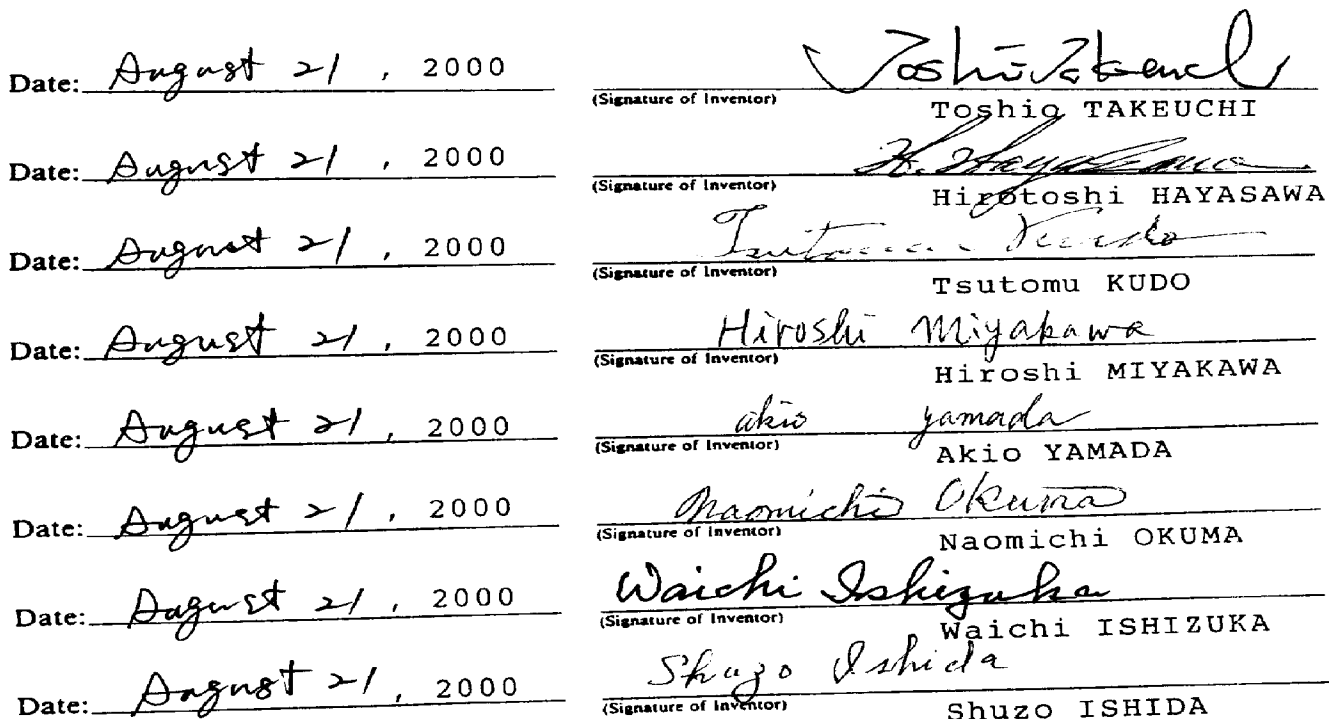 Date: August 21, 2000 Toshio Takeuchi
(Signature of Inventor)
Toshio TAKEUCHI
Date: August 21, 2000 H. Hayasawa
(Signature of Inventor)
Hirotoshi HAYASAWA
Date: August 21, 2000 Tsutomu Kudo
(Signature of Inventor)
Tsutomu KUDO
Date: August 21, 2000 Hiroshi Miyakawa
(Signature of Inventor)
Hiroshi MIYAKAWA
Date: August 21, 2000 akio yamada
(Signature of Inventor)
Akio YAMADA
Date: August 21, 2000 Naomichi Okuma
(Signature of Inventor)
Naomichi OKUMA
Date: August 21, 2000 Waichi Ishizuka
(Signature of Inventor)
Waichi ISHIZUKA
Date: August 21, 2000 Shuzo Ishida
(Signature of Inventor)
Shuzo ISHIDA